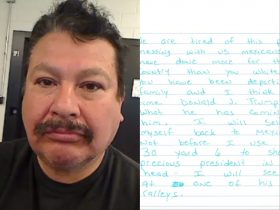 e are tired of this p
messing with us mexicans
have done more for th
country than you white
you have been deportin
family and I think
ime Donald J. Trump
what he has coming
him. I will sel
myself back to Mexi
Not before I use
30 yard 6 to sh
precious president in
head - I will see
at one of his
ralleys.